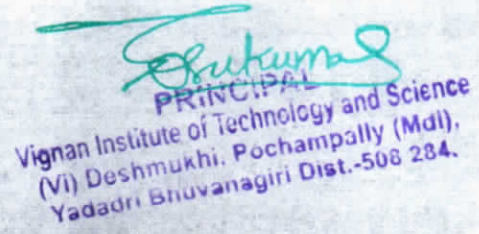 PRINCIPAL
Vignan Institute of Technology and Science
(Vi) Deshmukhi, Pochampally (Mdl),
Yadadri Bhuvanagiri Dist.-508 284.